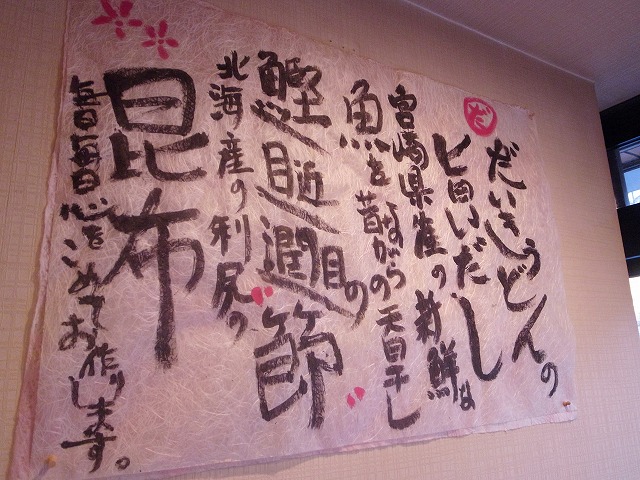 だ
だいきうどんの
旨いだし
宮崎県産の新鮮な
魚を昔ながらの天日干し
鰹目近潤目の節
北海産の利尻の
昆布
毎日毎日心をこめてお作りします。